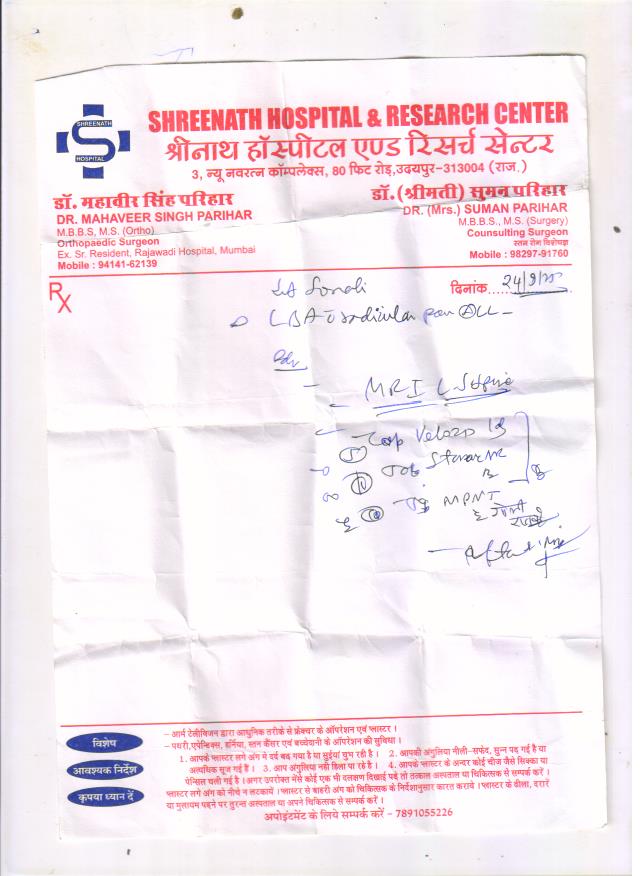 SHREENATH
HOSPITAL
SHREENATH HOSPITAL & RESEARCH CENTER
श्रीनाथ हॉस्पीटल एण्ड रिसर्च सेन्टर
3, न्यू नवरत्न कॉम्पलेक्स, 80 फिट रोड़, उदयपुर-313004 (राज.)
डॉ. महावीर सिंह परिहार
DR. MAHAVEER SINGH PARIHAR
M.B.B.S, M.S. (Ortho)
Orthopaedic Surgeon
Ex. Sr. Resident, Rajawadi Hospital, Mumbai
Mobile : 94141-62139
डॉ. (श्रीमती) सुमन परिहार
DR. (Mrs.) SUMAN PARIHAR
M.B.B.S., M.S. (Surgery)
Counsulting Surgeon
स्तन रोग विशेषज्ञ
Mobile : 98297-91760
Rx
दिनांक 24/9/
Sonali
LBA radicular pain
Adv
MRI L S Spine
Cap
Tab
MPNT
विशेष
आवश्यक निर्देश
कृपया ध्यान दें
– आर्म टेलीविजन द्वारा आधुनिक तरीके से फ्रेक्चर के ऑपरेशन एवं प्लास्टर ।
– पथरी, एपेन्डिक्स, हर्निया, स्तन कैंसर एवं बच्चेदानी के ऑपरेशन की सुविधा ।
1. आपके प्लास्टर लगे अंग मे दर्द बढ़ गया है या सुईयां चुभ रही है । 2. आपकी अंगुलिया नीली-सफेद, सुन्न पद गई है या
अत्यधिक सूज गई हैं । 3. आप अंगुलिया नहीं हिला पा रहे है । 4. आपके प्लास्टर के अन्दर कोई चीज जैसे सिक्का या
पेन्सिल चली गई है । अगर उपरोक्त मेंसे कोई एक भी दलक्षण दिखाई पदे तो तत्काल अस्पताल या चिकित्सक से सम्पर्क करें ।
प्लास्टर लगे अंग को नीचे न लटकायें । प्लास्टर से बाहरी अंग को चिकित्सक के निर्देशानुसार कारत करावे । प्लास्टर के ढीला, दरारें
या मुलायम पड़ने पर तुरन्त अस्पताल या अपने चिकित्सक से सम्पर्क करें ।
अपोइंटमेंट के लिये सम्पर्क करें - 7891055226